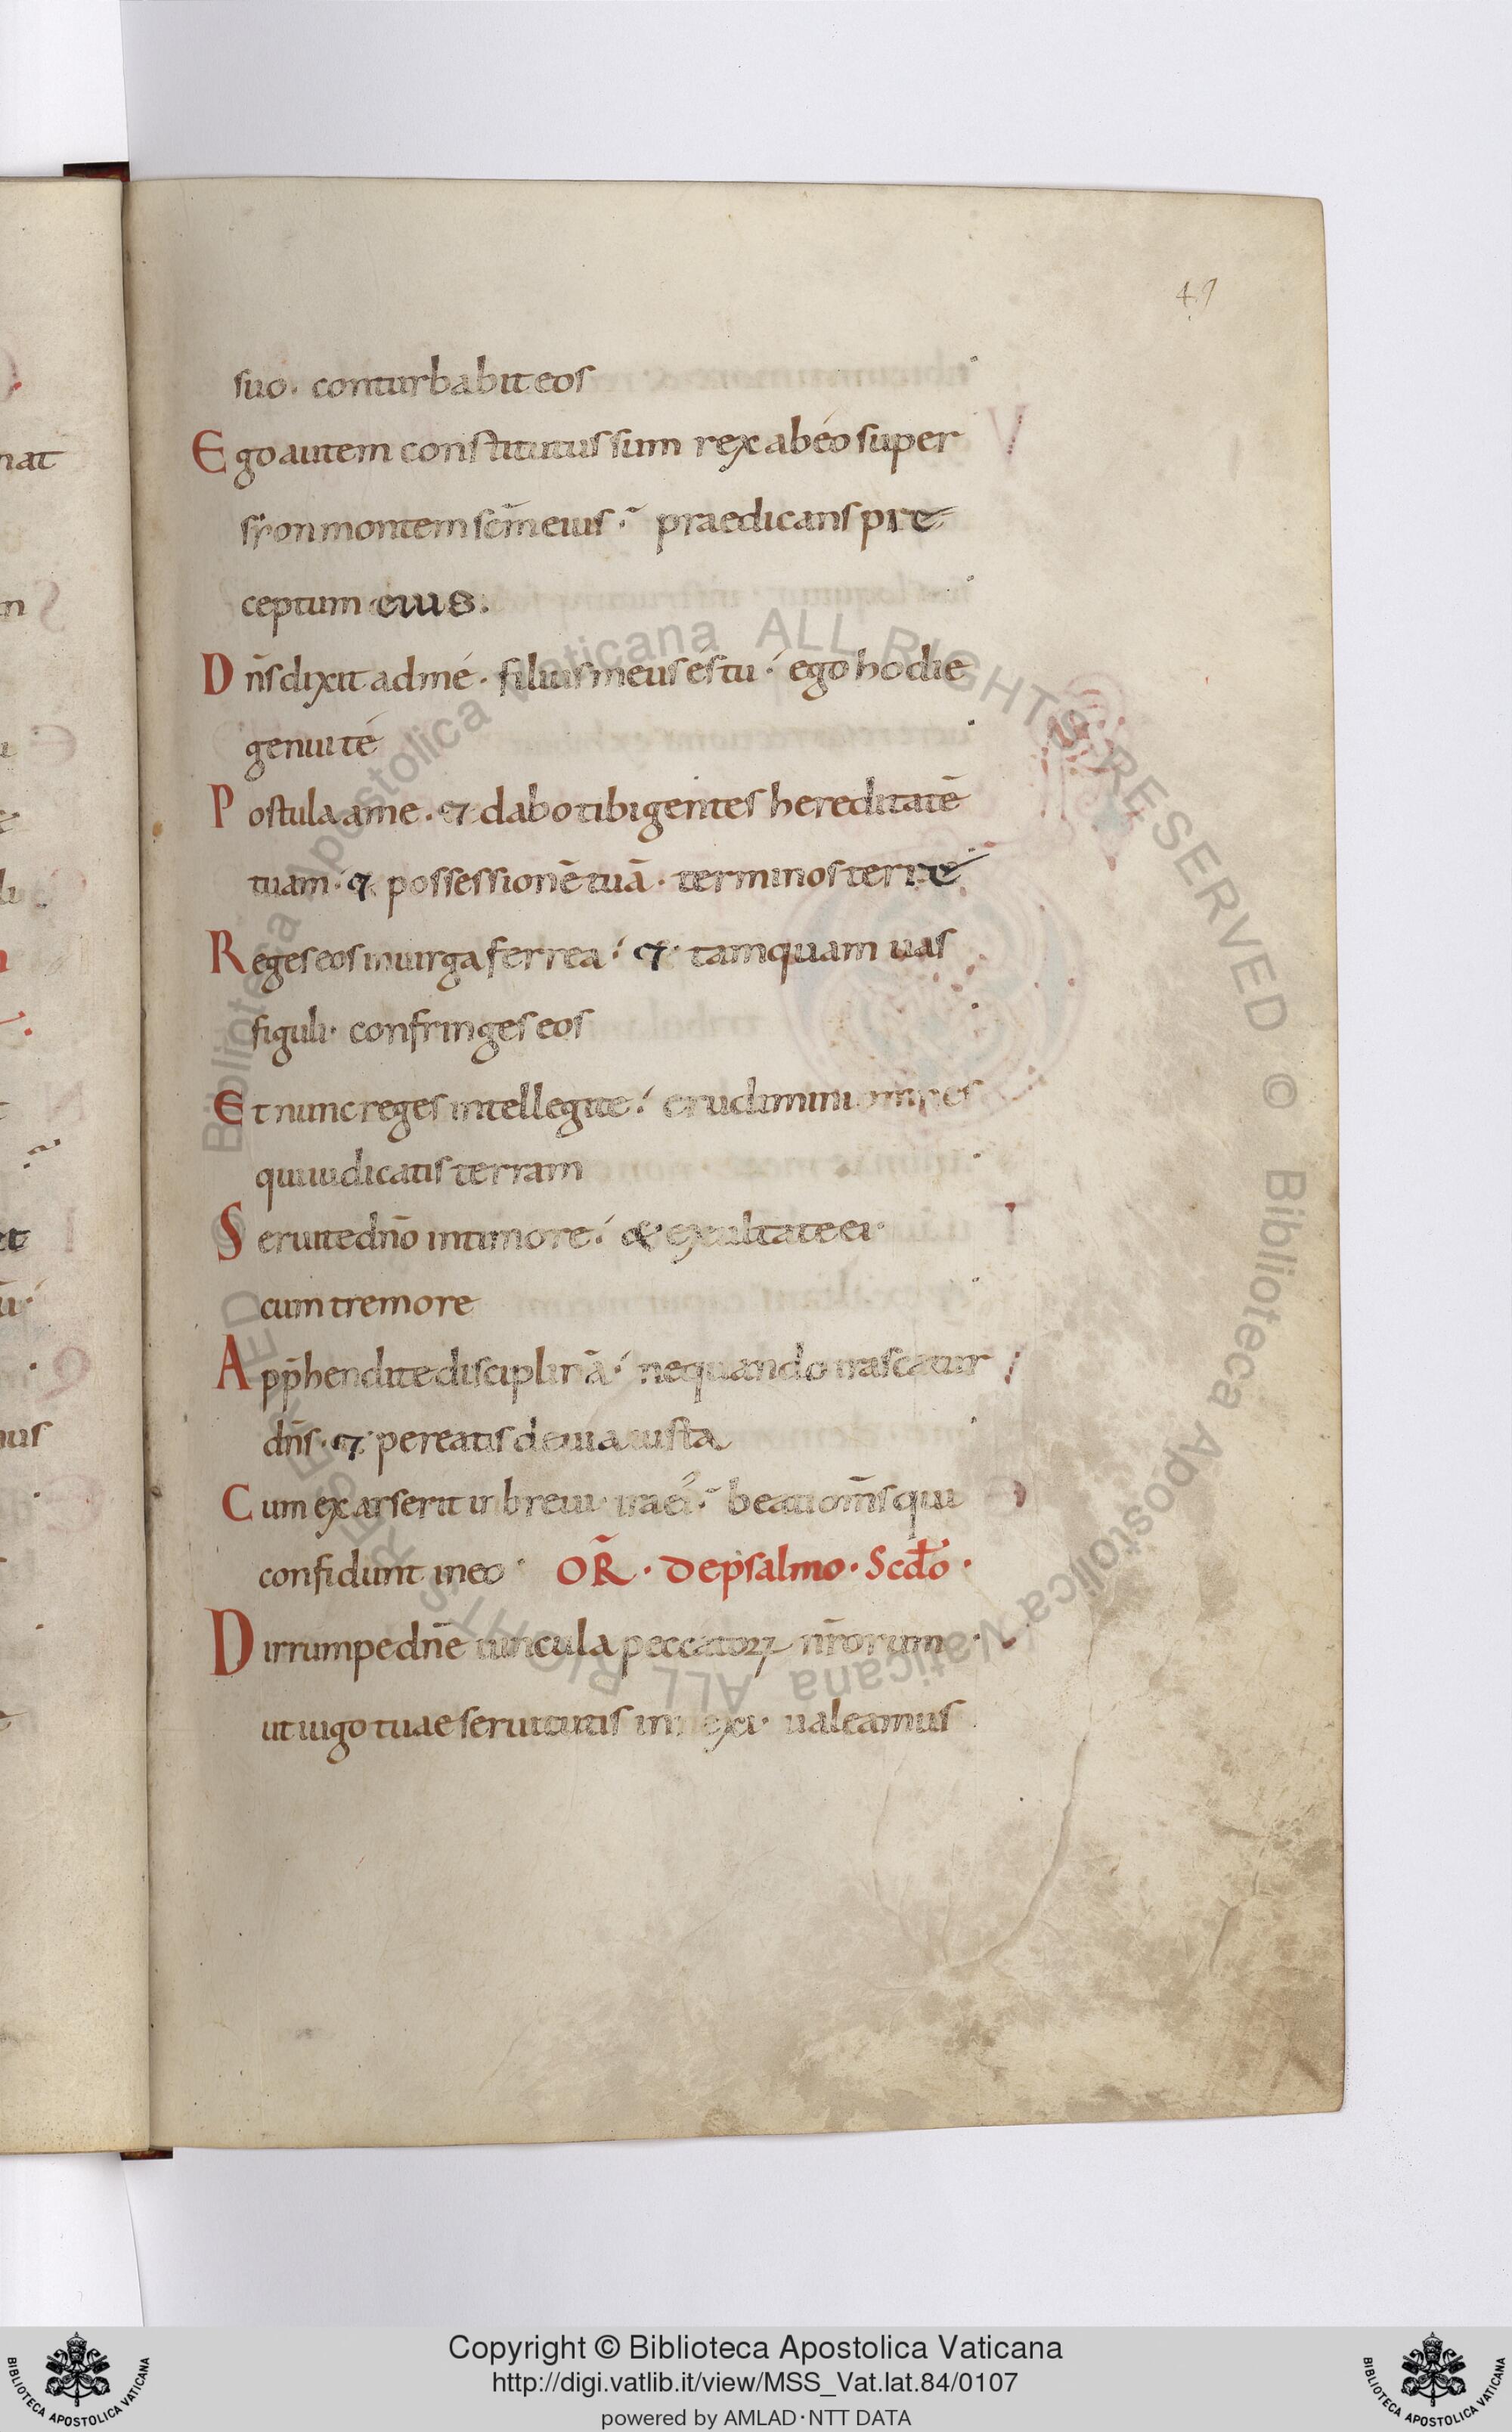 49
suo. conturbabit eos
Ego autem constitutus sum rex ab éo super
syon montem scm̄ eius. praedicans pre
ceptum eius.
Dn̄s dixit ad mé. filius meus es tu. ego hodie
genui té
Postula a me. & dabo tibi gentes hereditatē
tuam. & possessionē tuā. terminos terre
Reges eos in uirga ferrea. & tamquam uas
figuli. confringes eos
Et nunc reges intellegite. erudimini
qui iudicatis terram
Seruite dnō in timore. & exultate ei
cum tremore
App̄hendite disciplinā. nequando irascatur
dn̄s. & pereatis de uia iusta
Cum exarserit in breui ira ei. beati omn̄s qui
confidunt in eo OR̄. De psalmo. Scd̄o.
Dirrumpe dn̄e uincula peccatoꝝ nr̄orum
ut iugo tuae seruitutis ualeamus
Biblioteca Apostolica Vaticana ALL RIGHTS RESERVED © Biblioteca Apostolica Vaticana ALL RIGHTS RESERVED ©
Copyright © Biblioteca Apostolica Vaticana
http://digi.vatlib.it/view/MSS_Vat.lat.84/0107
powered by AMLAD·NTT DATA
BIBLIOTECA APOSTOLICA VATICANA
BIBLIOTECA APOSTOLICA VATICANA